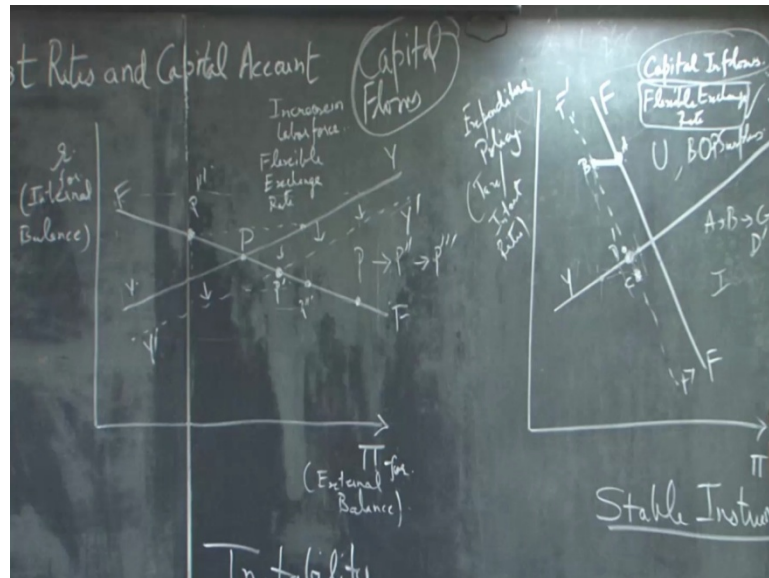 st Rates and Capital Account
Capital
Flows
Increase in
labor force
Flexible
Exchange
Rate
r
(Internal for
Balance)
F
P'''
P
Y
D
Y'
P → P'' → P'''
P'
P''
Y
Y'
F
Π
(External for
Balance)
Instability
Capital Inflows
Flexible Exchange
Rate
U, BOP Surplus
Expenditure
Policy
(Tax/
Interest
Rates)
F'
F
B
A
A → B → C
D'
D
C
Y
I
F'
F
Π
Stable Instru